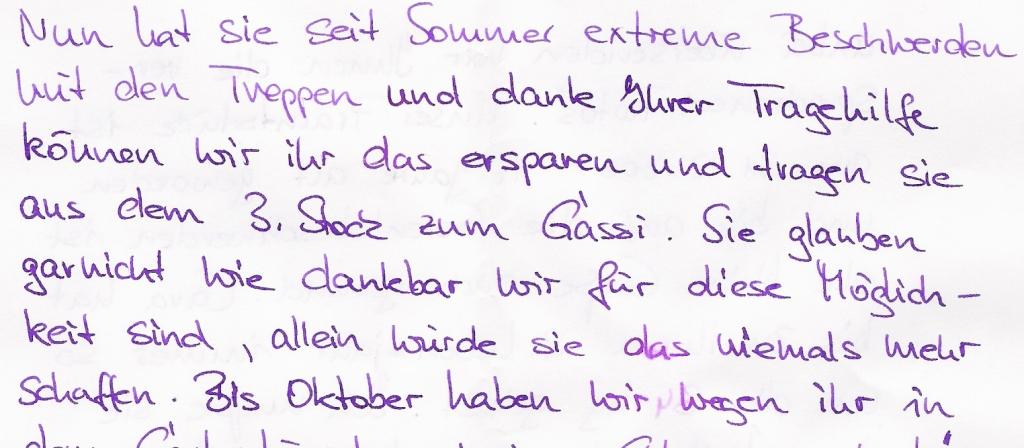 Nun hat sie seit Sommer extreme Beschwerden
mit den Treppen und dank Ihrer Tragehilfe
können wir ihr das ersparen und tragen sie
aus dem 3. Stock zum Gassi. Sie glauben
garnicht wie dankbar wir für diese Möglich-
keit sind, allein würde sie das niemals mehr
schaffen. Bis Oktober haben wir wegen ihr in